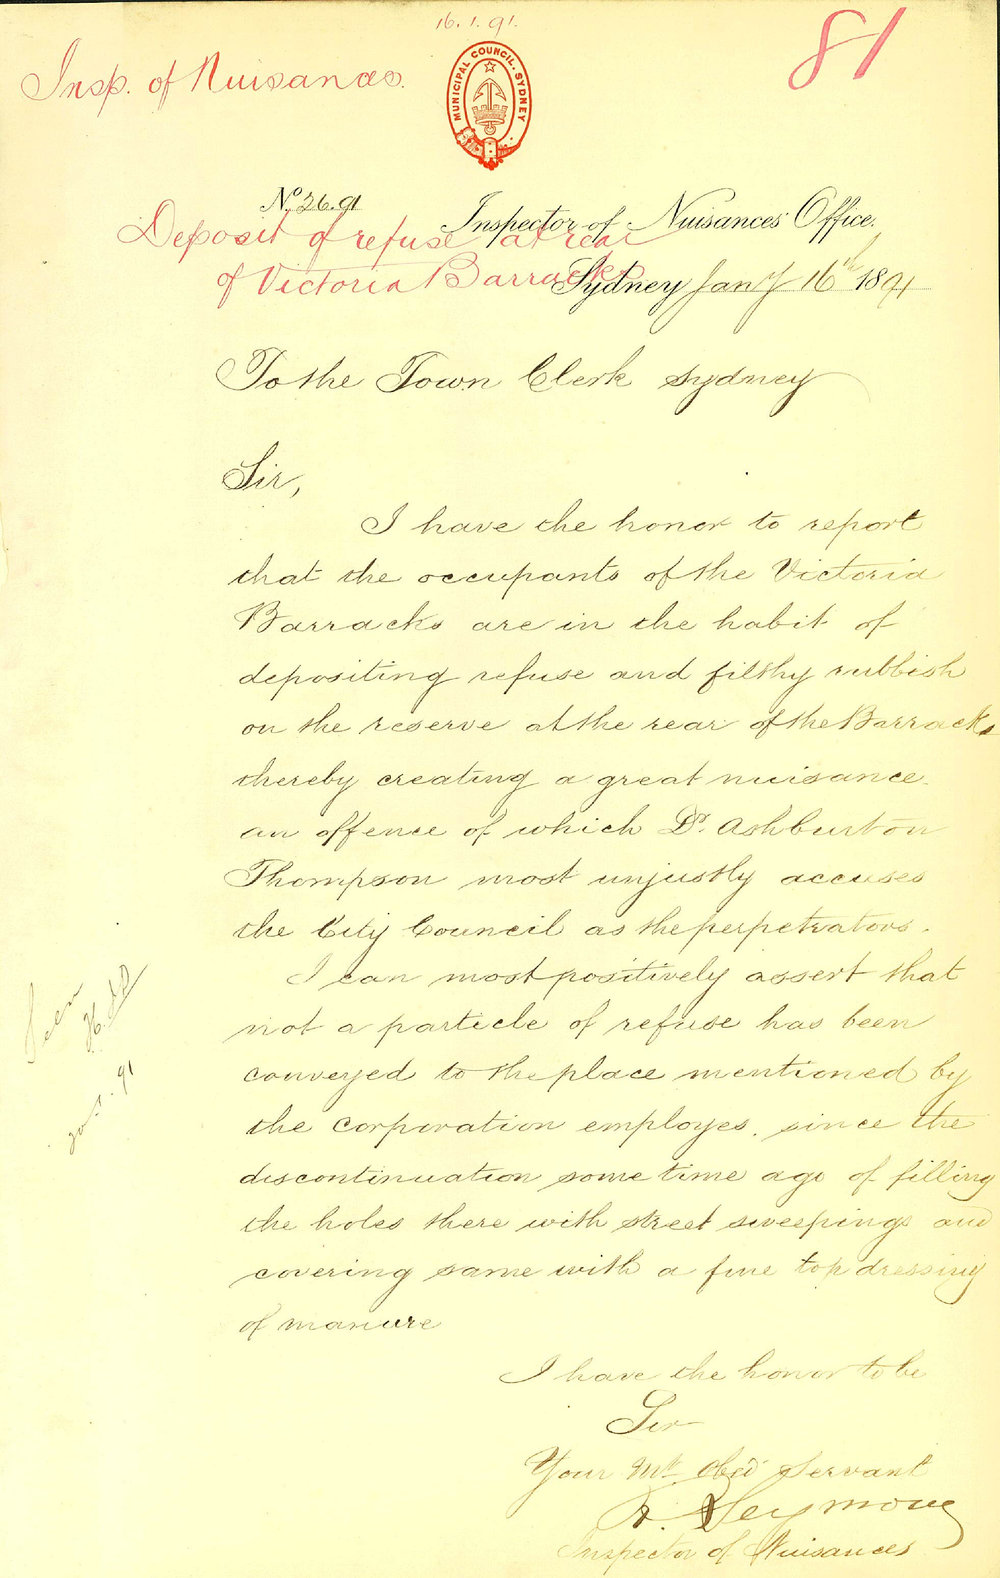 16.1.91.
81
Insp. of Nuisances.
MUNICIPAL COUNCIL. SYDNEY
No. 26.91
Inspector of Nuisances' Office.
Deposit of refuse at rear
of Victoria Barracks
Sydney Jany 16th 1891
To the Town Clerk Sydney
Sir,
I have the honor to report
that the occupants of the Victoria
Barracks are in the habit of
depositing refuse and filthy rubbish
on the reserve at the rear of the Barracks
thereby creating a great nuisance.
an offence of which Dr. Ashburton
Thompson most unjustly accuses
the City Council as the perpetrators.
I can most positively assert that
not a particle of refuse has been
conveyed to the place mentioned by
the Corporation employes. since the
discontinuation some time ago of filling
the holes there with street sweepings and
covering same with a fine top dressing
of manure
Seen
20.1.91
I have the honor to be
Sir
Your Mt. Obed Servant
R. Seymour
Inspector of Nuisances